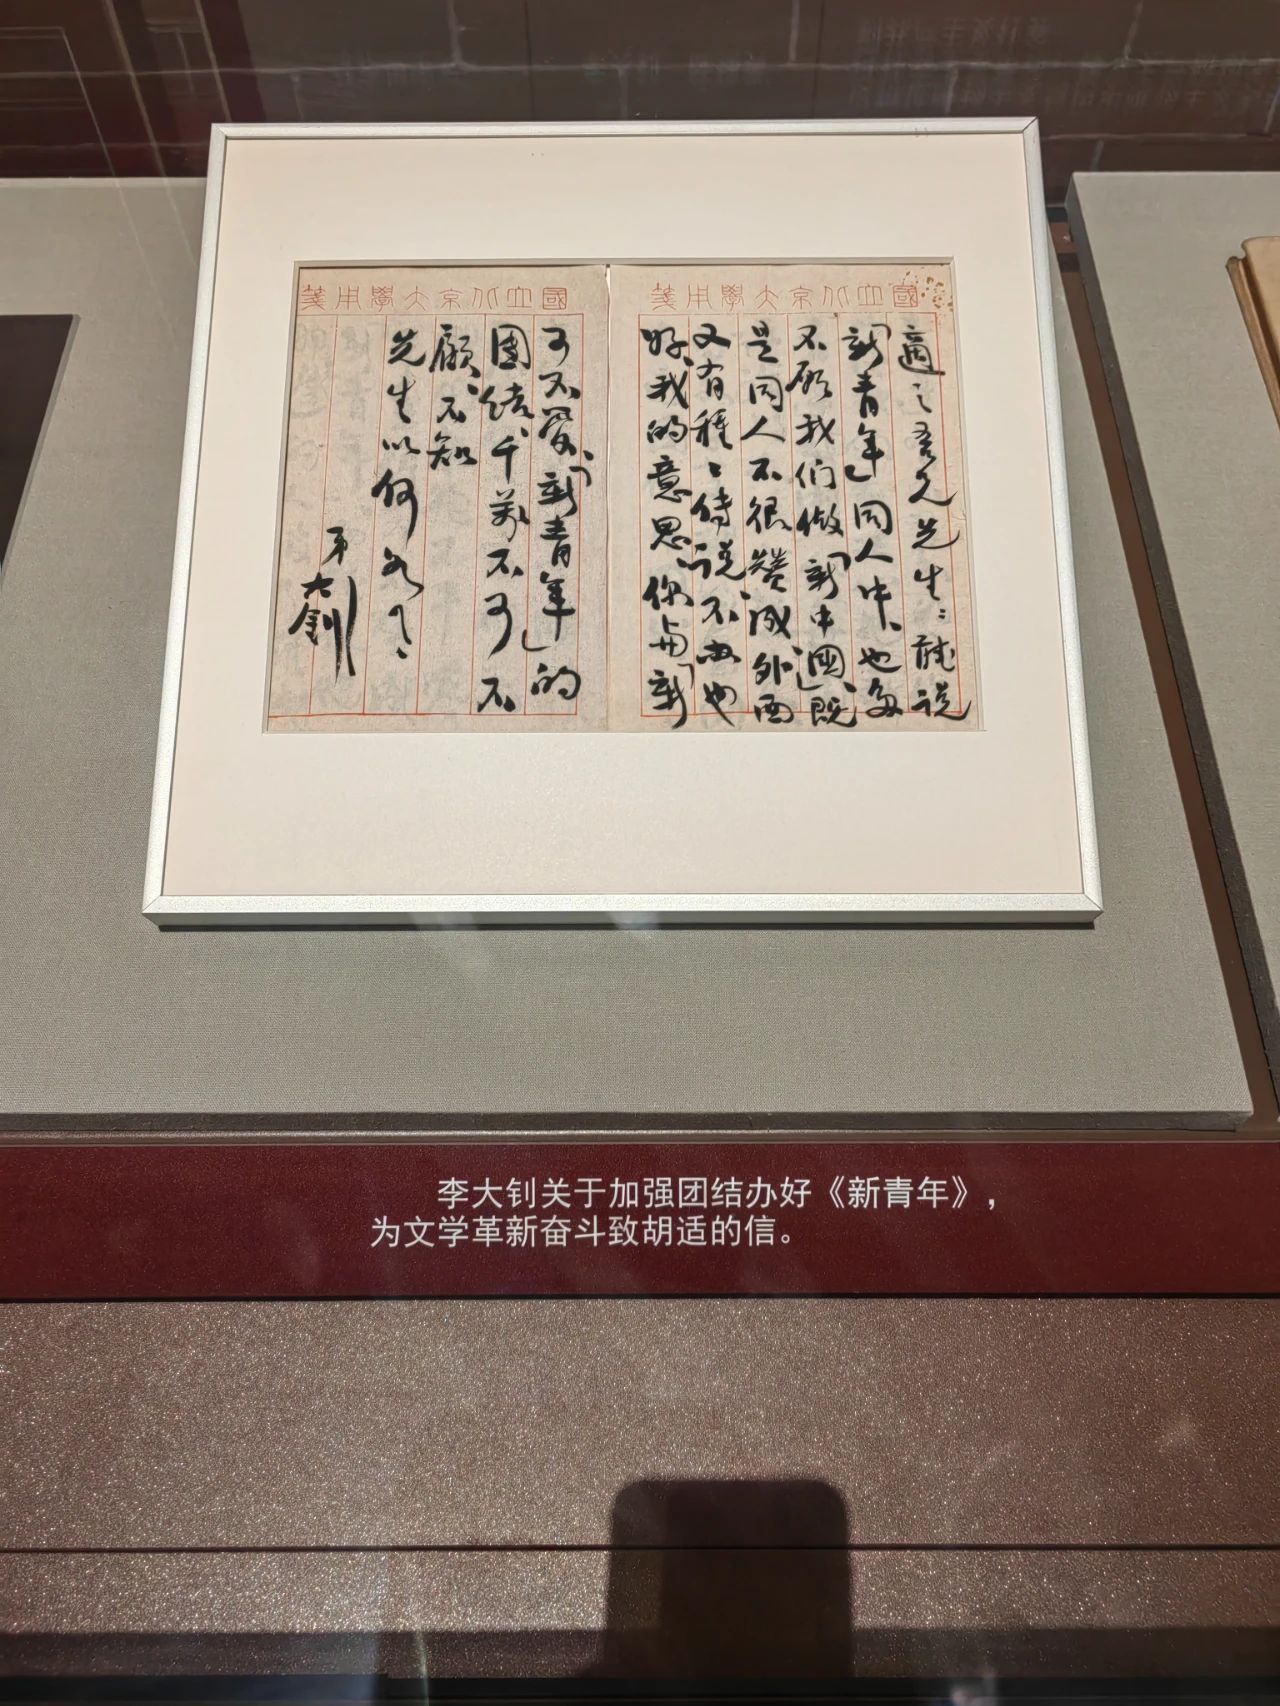 國立北京大學用箋
適之吾兄先生：聽說
「新青年」同人中、也多
不願我们做「新中國」、既
是同人不很贊成、外面
又有種種傳說、不办也
好、我的意思、你與「新
國立北京大學用箋
可不管、「新青年」的
團結、千萬不可不
顧、不知
先生以何
弟
大釗
李大钊关于加强团结办好《新青年》，
为文学革新奋斗致胡适的信。